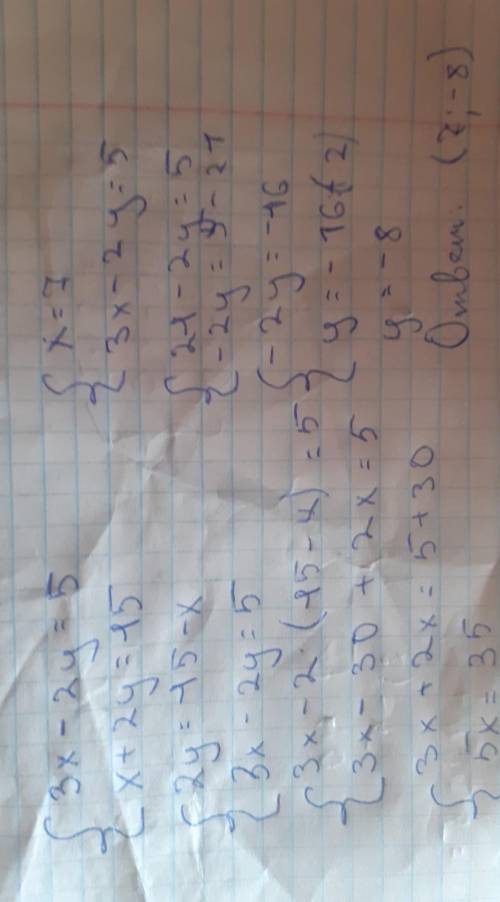 3x - 2y = 5
x + 2y = 15
2y = 15 - x
3x - 2y = 5
3x - 2 · (15 - x) = 5
3x - 30 + 2x = 5
3x + 2x = 5 + 30
5x = 35
x = 7
3x - 2y = 5
21 - 2y = 5
-2y = 5 - 21
-2y = -16
y = -16 : (-2)
y = -8
Ответ. (7; -8)